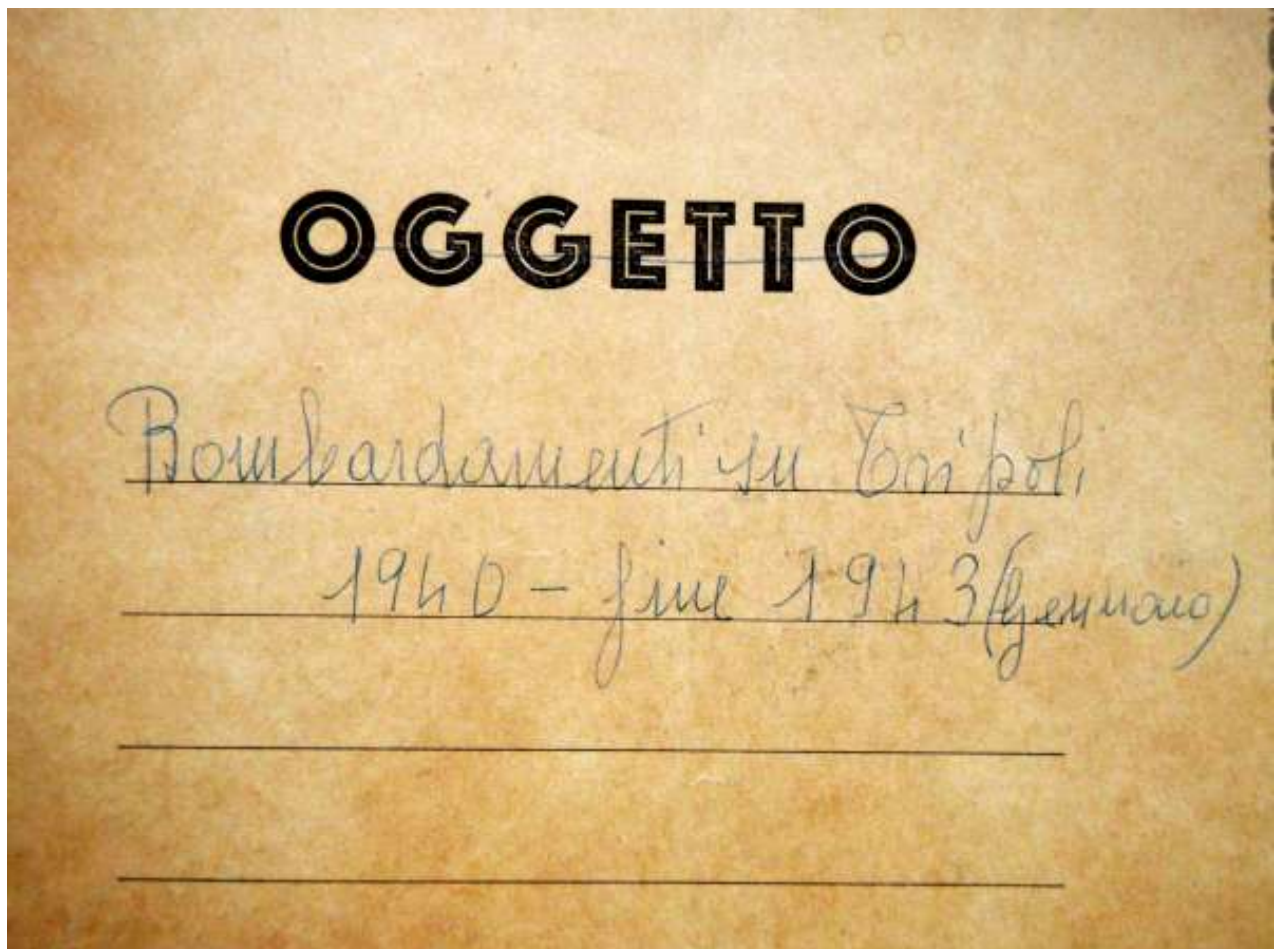 OGGETTO
Bombardamenti su Tripoli
1940 - fine 1943 (Gennaio)